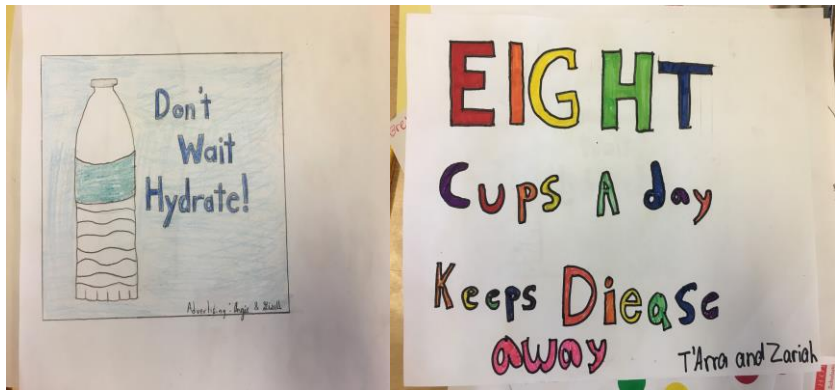 Don't
Wait
Hydrate!
Advertising: Angie &
EIGHT
Cups A day
Keeps Diease
away
T'Arra and Zariah